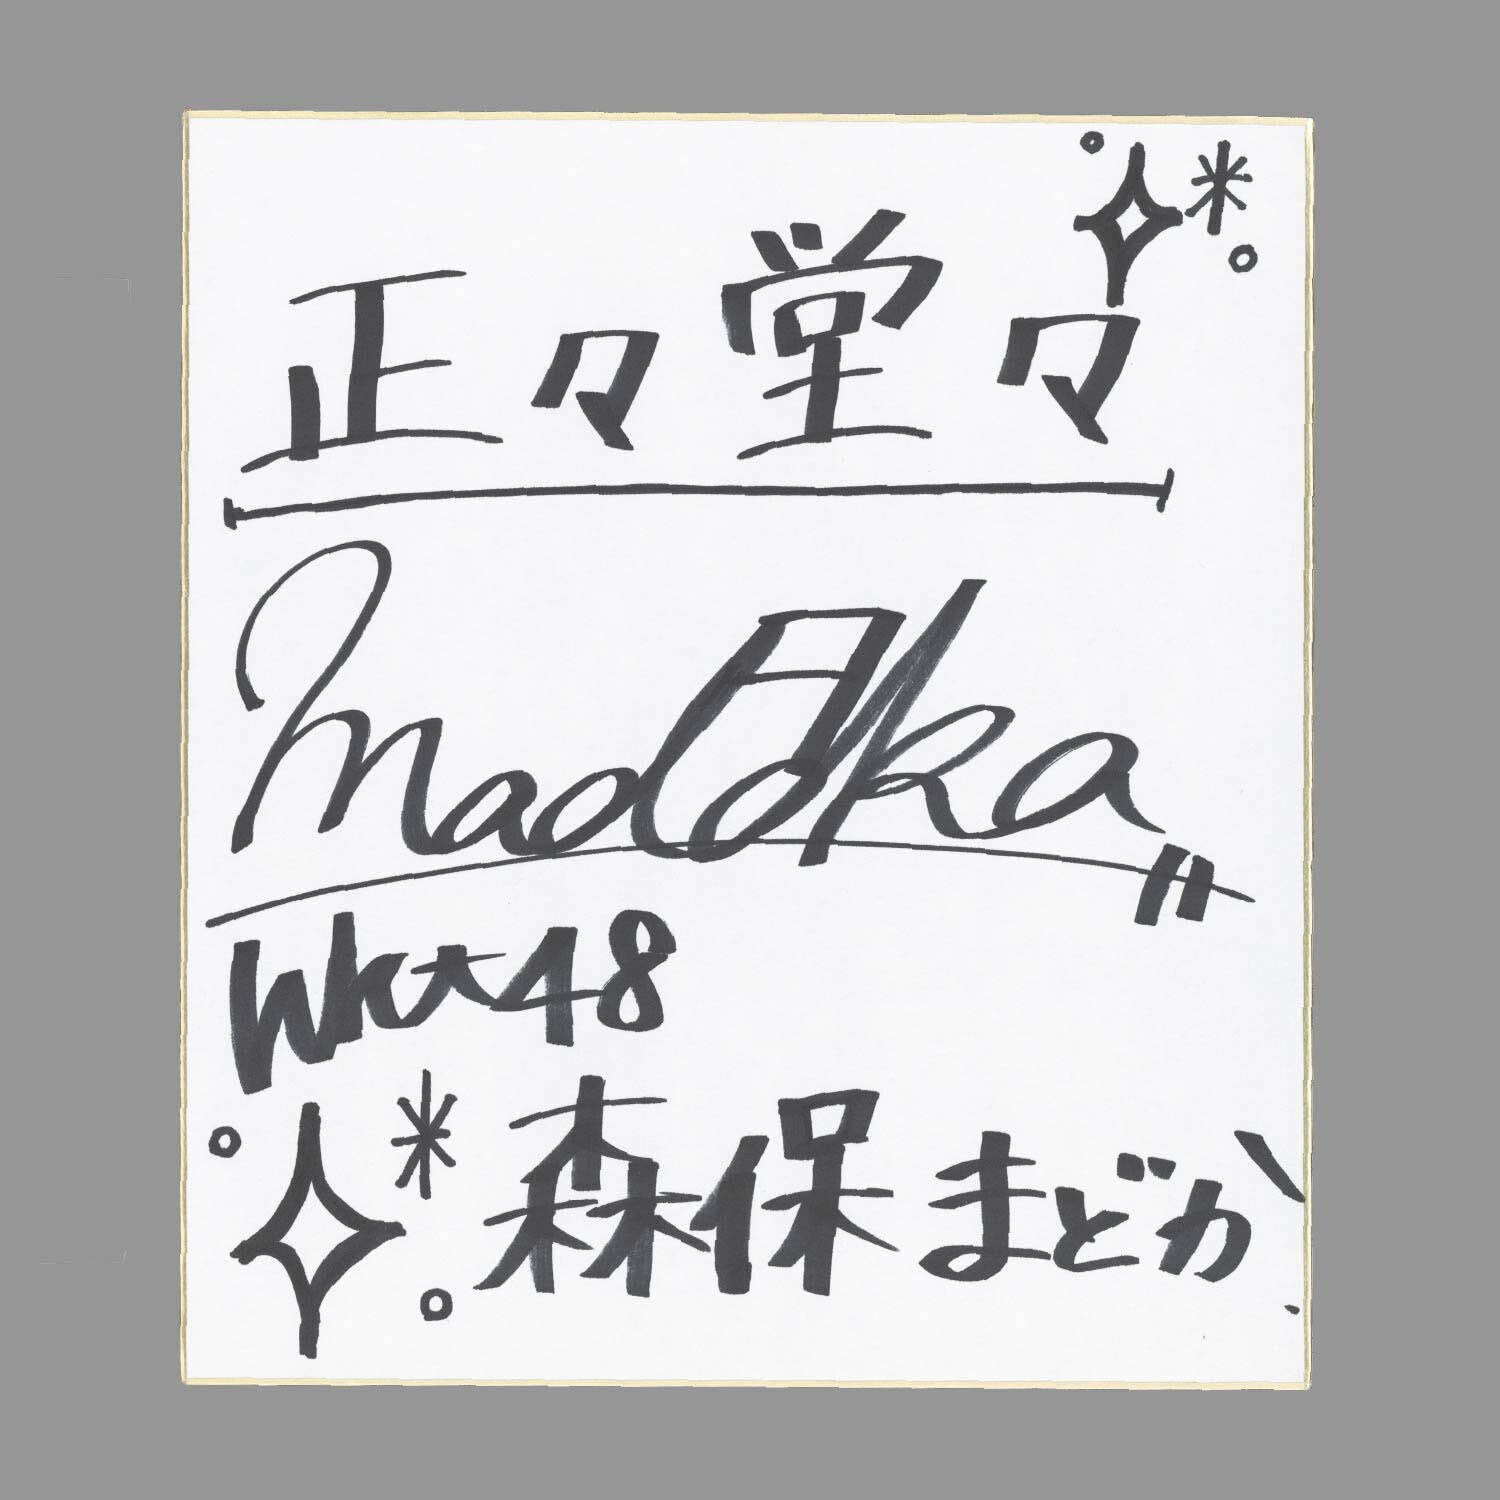 正々堂々
Madoka"
HKT48
森保まどか